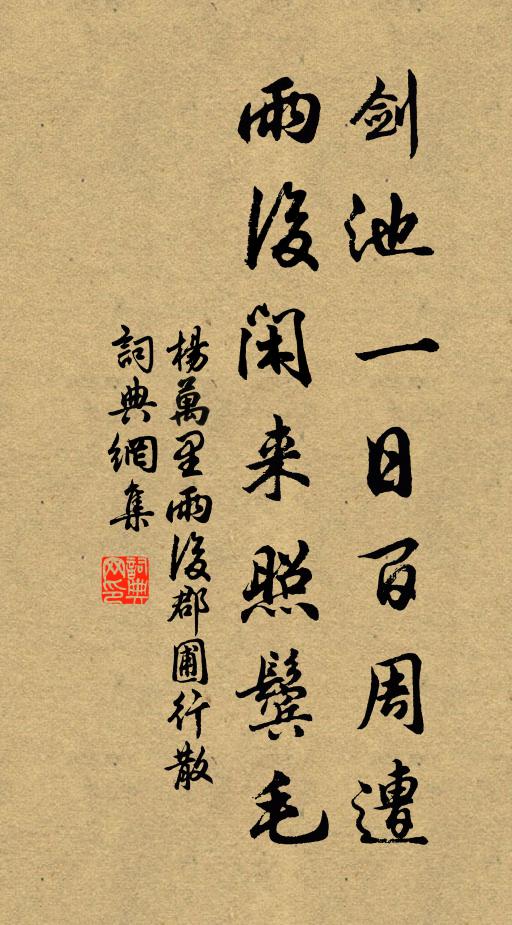 剑池一日百周遭
雨後闲来照鬓毛
楊萬里雨後郡圃行散
詞典網集
詞典网印